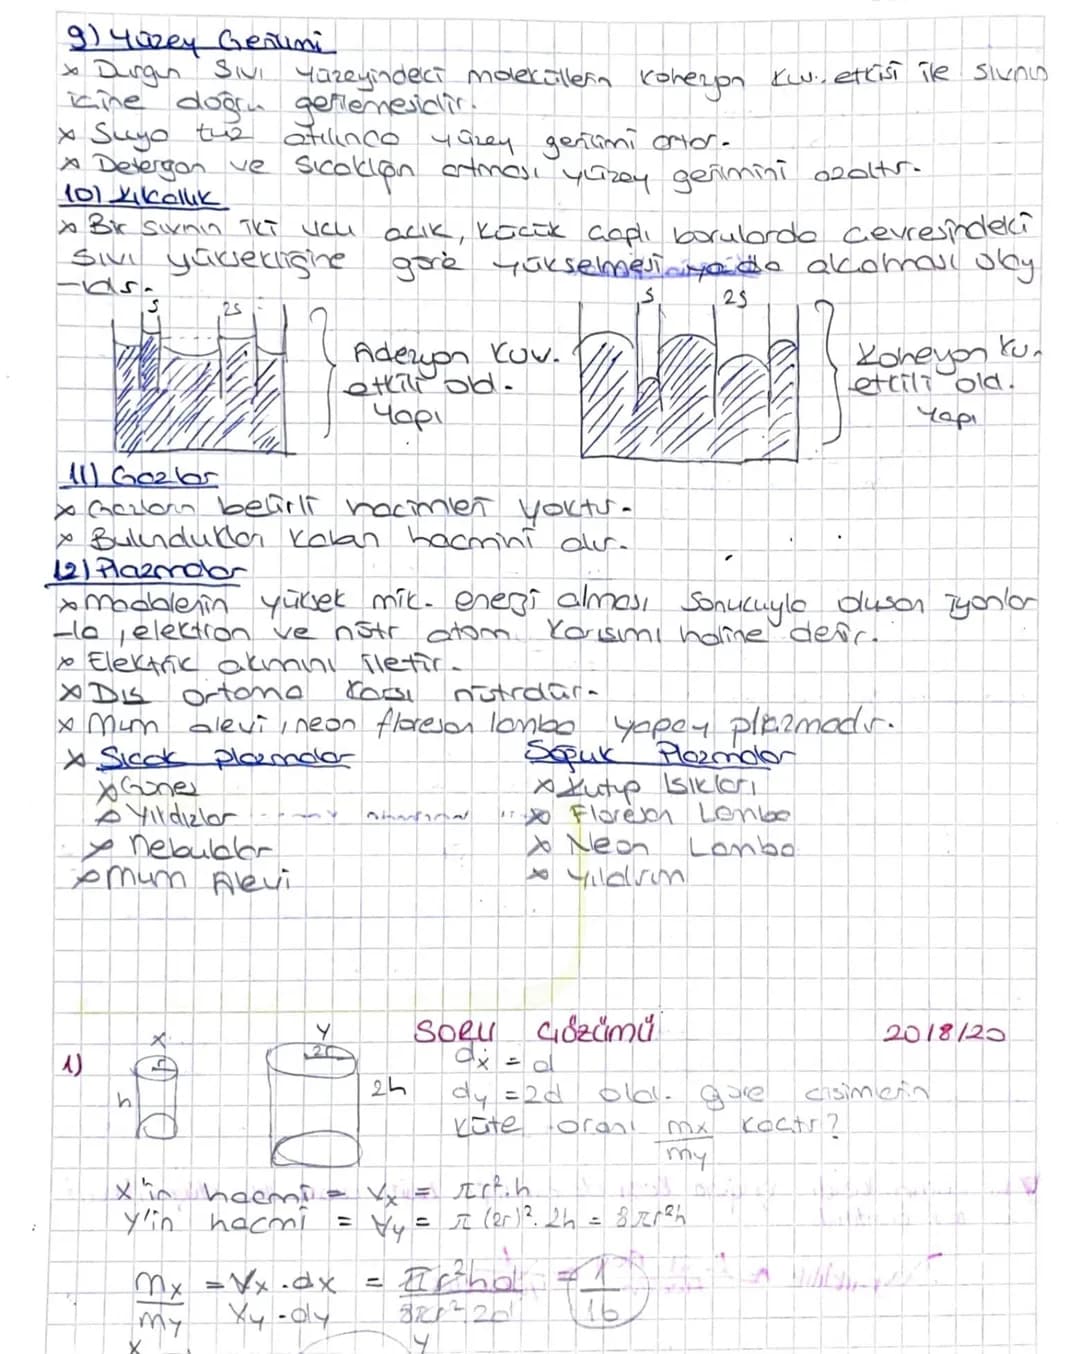 9) Yüzey Gerilimi
x Durgun sıvı yüzeyindeki moleküllerin kohezyon kuv. etkisi ile sıvının
içine doğru gerilemesidir.
x Suya tuz atılınca yüzey gerilimi artar.
x Detergan ve sıcaklığın artması yüzey gerimini azaltır.
10) Kılcallık
x Bir sıvının iki ucu açık, küçük çaplı borularda çevresindeki
sıvı yüksekliğine göre yükselmesi ya da alçalması olay
-ıdır.
S 2S S 2S
Adezyon kuv. Kohezyon ku.
etkili old. etkili old.
yapı yapı
11) Gazlar
x Gazların belirli hacimleri yoktur.
x Bulundukları kabın hacmini alır.
12) Plazmalar
x Maddelerin yüksek mik. enerji alması sonucuyla oluşan iyonlar
-la, elektron ve nötr atom karışımı haline denir.
x Elektrik akımını iletir.
x Dış ortama karşı nötrdür.
x Mum alevi, neon floresan lamba yapay plazmadır.
x Sıcak plazmalar Soğuk Plazmalar
x Güneş x Kutup Işıkları
x Yıldızlar x Floresan Lamba
x Nebulalar x Neon Lamba
x Mum Alevi x Yıldırım
SORU ÇÖZÜMÜ 2018/20
1) x r h Y 2r 2h
dx = d
dy = 2d old. göre cisimlerin
kütle oranı mx/my kaçtır?
X'in hacmi = Vx = πr².h
Y'in hacmi = Vy = π(2r)².2h = 8πr²h
mx/my = Vx.dx/Vy.dy = πr²hd/8πr².2d = 1/16
x y